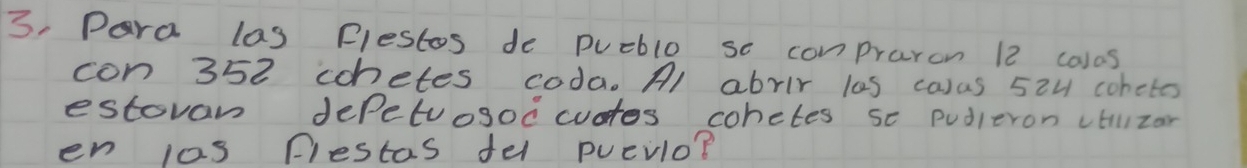 3. Para las fiestas de pueblo se compraron 12 cajas
con 352 cohetes cada. Al abrir las cajas 524 cohetes
estovan depetuoso¿cuotos cohetes se pudieron utilizar
en las fiestas del puevlo?